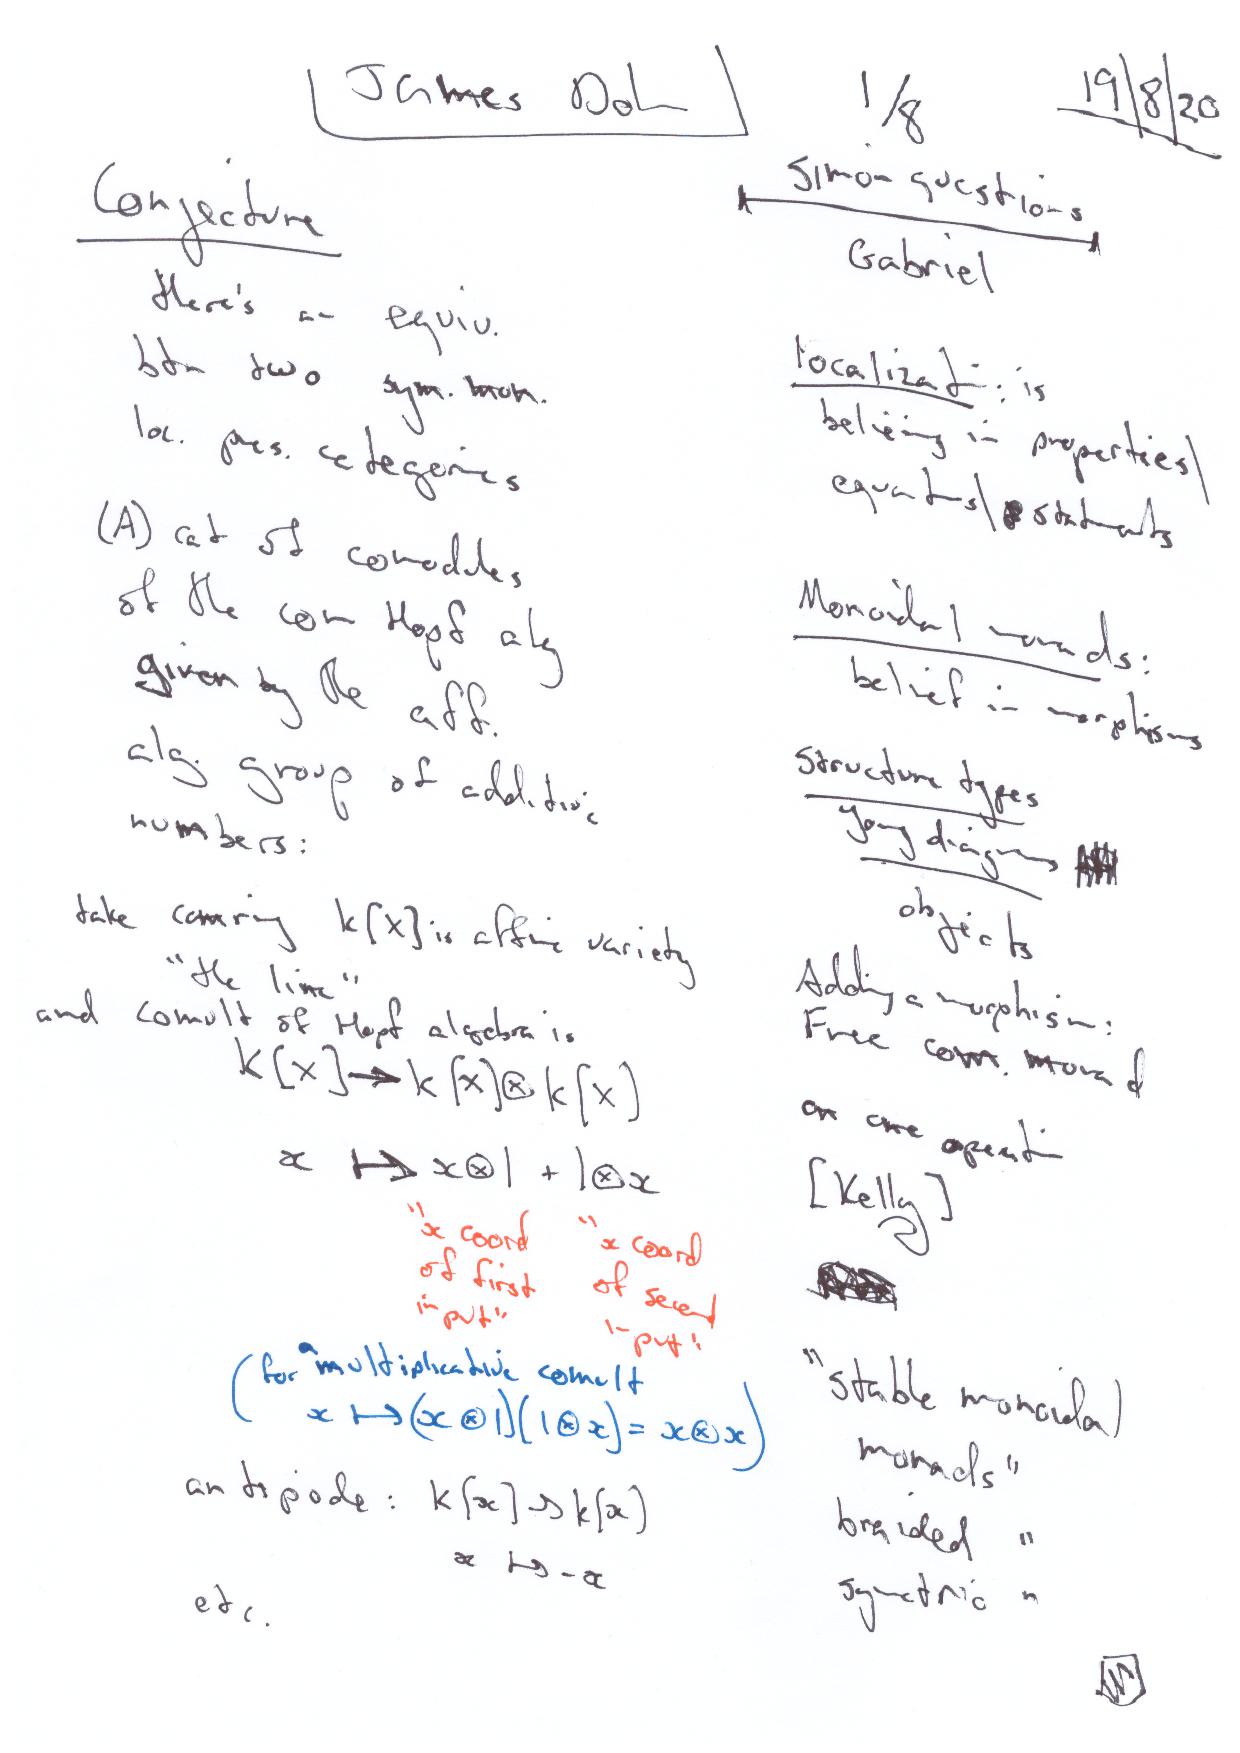 James Dol
1/8
19/8/20
Conjecture
there's an equiv.
btn two sym. mon.
loc. pres. categories
(A) cat of comodules
of the com Hopf alg
given by the aff.
alg. group of additive
numbers:
take com ring k[x] is affine variety
"the line"
and comult of Hopf algebra is
k[x] → k[x]⊗k[x]
x ↦ x⊗1 + 1⊗x
"x coord
of first
input"
"x coord
of second
input"
(for a multiplicative comult
x ↦ (x⊗1)(1⊗x) = x⊗x)
antipode: k[x] → k[x]
x ↦ -x
etc.
Simon questions
Gabriel
Localizat: is
believing in properties/
equats/statments
Monoidal monads:
belief in morphisms
Structure types
Young diagrams
objects
Adding a morphism:
Free com. monad
on one operati
[Kelly]
"stable monoidal
monads"
braided "
symetric "